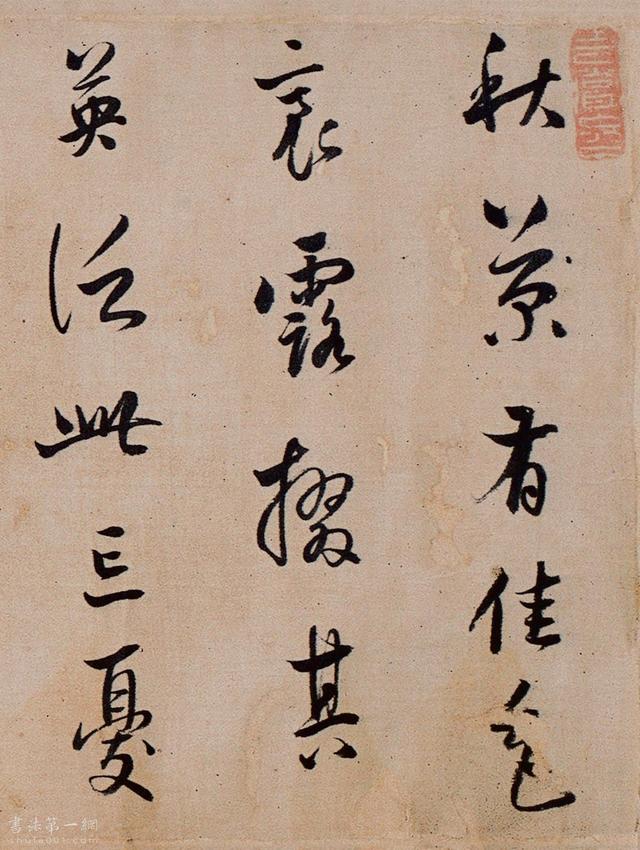 秋菊有佳色
裛露掇其
英泛此忘憂
書法第一網
shufa001.com